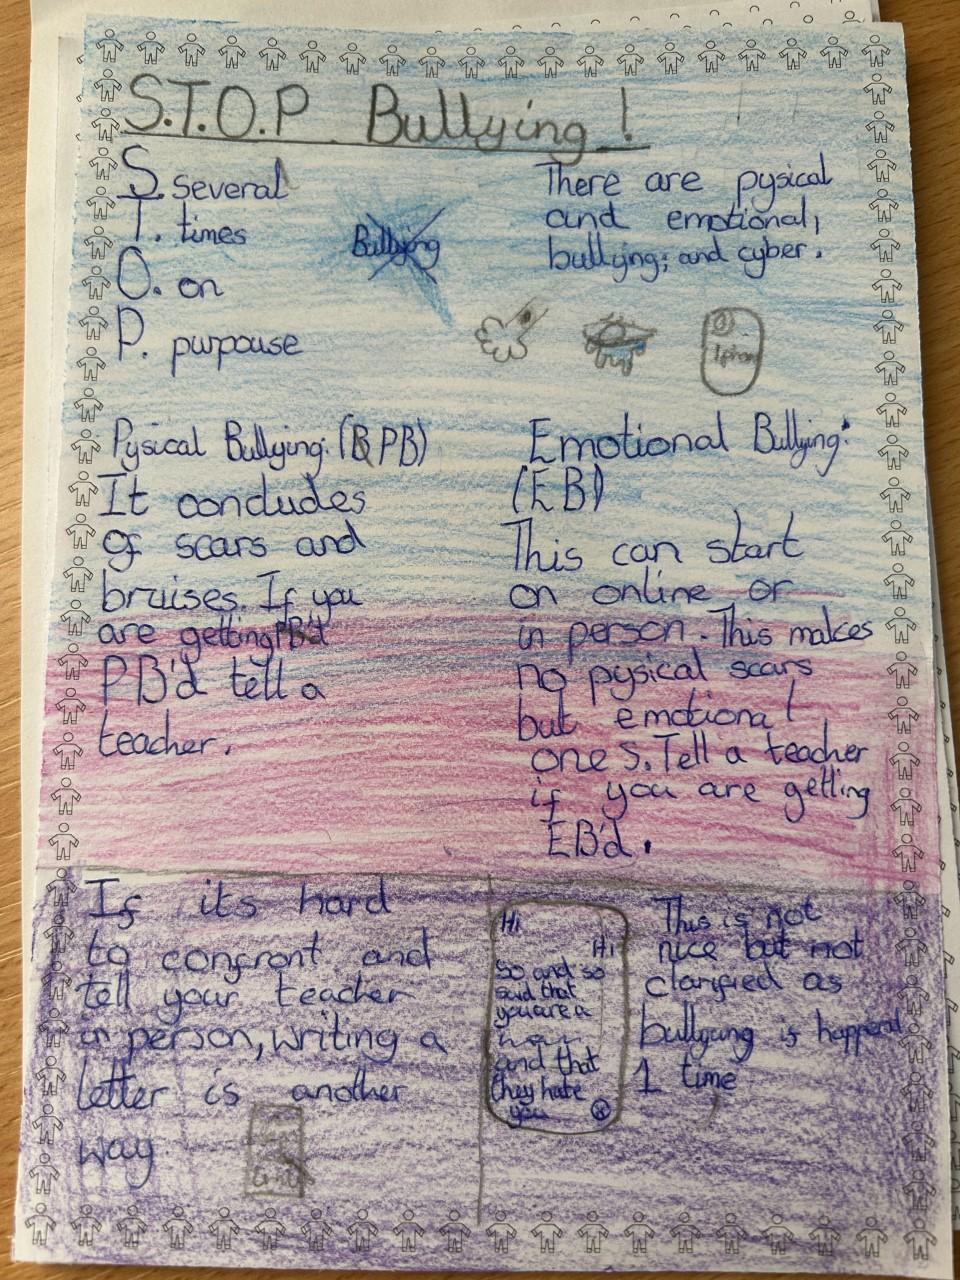 S.T.O.P Bullying!
S. several
T. times
O. on
P. purpouse
Bullying
There are pysical
and emotional,
bullying; and cyber.
Iphon
Pysical Bullying: (PB)
It concludes
of scars and
bruises. If you
are getting
PB'd tell a
teacher.
Emotional Bullying:
(EB)
This can start
on online or
in person. This makes
no pysical scars
but emotional
ones. Tell a teacher
if you are getting
EB'd.
If its hard
to confront and
tell your teacher
in person, writing a
letter is another
way
Hi
Hi
So and so
said that
you are a
and that
they hate
you
This is not
nice but not
clarified as
bullying is happend
1 time